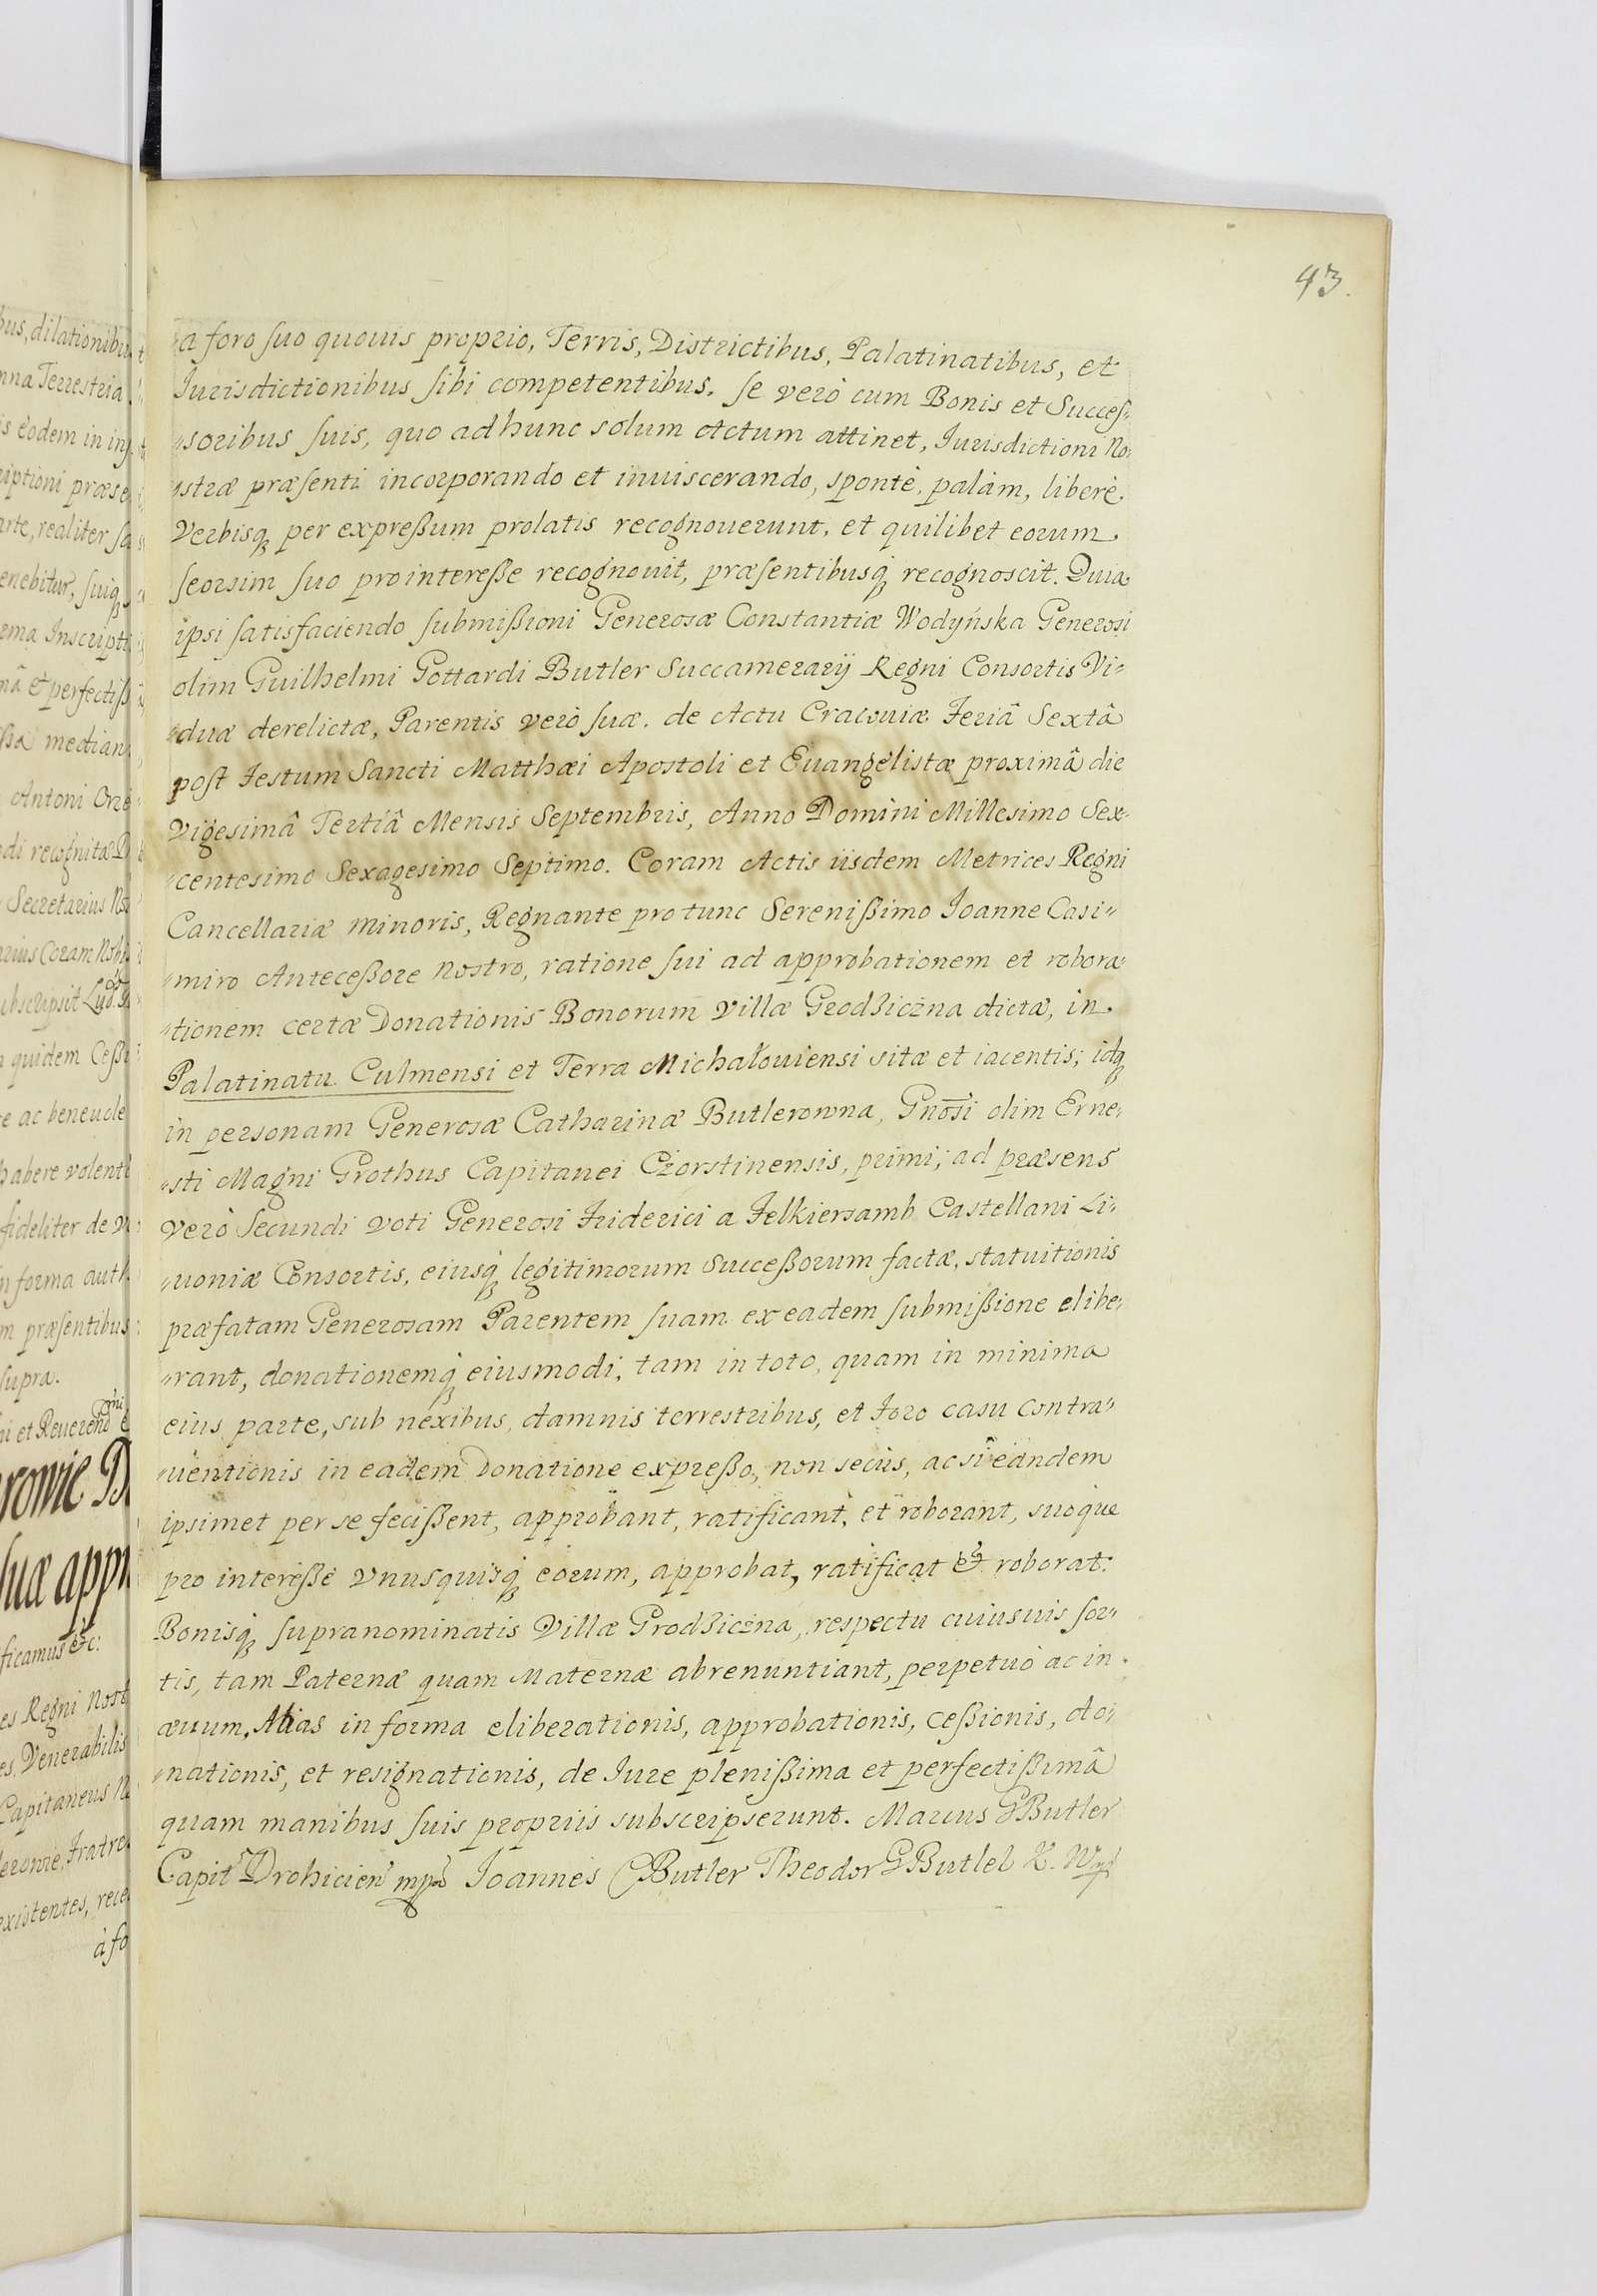 43.
a foro suo quovis proprio, Terris, Districtibus, Palatinatibus, et
Iurisdictionibus sibi competentibus. se verò cum Bonis et Succes-
"soribus suis, quo ad hunc solum Actum attinet, Iurisdictioni No-
"stræ præsenti incorporando et inuiscerando, spontè, palàm, liberè.
Verbisq́ per expreßum prolatis recognouerunt, et quilibet eorum.
seorsim suo pro intereße recognouit, præsentibusq́ recognoscit. Quia
ipsi satisfaciendo submißioni Generosæ Constantiæ Wodyńska Generosi
olim Guilhelmi Gottardi Butler Succamerarij Regni Consortis Vi-
"duæ derelictæ, Parentis verò suæ. de Actu Cracouiæ Feriâ Sextâ
post Festum Sancti Matthæi Apostoli et Euangelistæ proximâ die
Vigesimâ Tertiâ Mensis Septembris, Anno Domini Millesimo Sex-
"centesimo Sexagesimo Septimo. Coram Actis iisdem Metrices Regni
Cancellariæ minoris, Regnante pro tunc Serenißimo Ioanne Casi"
"miro Anteceßore nostro, ratione sui ad approbationem et robora-
"tionem certæ Donationis Bonorum Villæ Grodziczna dictæ, in.
Palatinatu Culmensi et Terra Michałouiensi sitæ et iacentis; idq́
in personam Generosæ Catharinæ Butlerowna, Gnōsi olim Erne-
"sti Magni Grothus Capitanei Czorstinensis, primi; ad præsens
verò Secundi voti Generosi Friderici a Felkiersamb Castellani Li-
"uoniæ Consortis, eiusq́ legitimorum Succeßorum factæ, statuitionis
præfatam Generosam Parentem suam ex eadem submißione elibe-
"rant, donationemq́ eiusmodi, tam in toto, quam in minima
eius parte, sub nexibus, damnis terrestribus, et Foro casu contra"
"uentionis in eadem Donatione expreßo, non secùs, ac si eandem
ipsimet per se fecißent, approbant, ratificant, et roborant, suoque
pro intereße vnusquisq́ eorum, approbat, ratificat et roborat.
Bonisq́ supranominatis Villæ Grodziczna, respectu cuiusuis sor-
tis, tam Paternæ quam Maternæ abrenuntiant, perpetuò ac in
æuum. Alias in forma eliberationis, approbationis, ceßionis, do-
"nationis, et resignationis, de Iure plenißima et perfectißimâ
quam manibus suis propriis subscripserunt. Marcus G Butler
Capit Drohicien mpp Ioannes C Butler Theodor G Butler